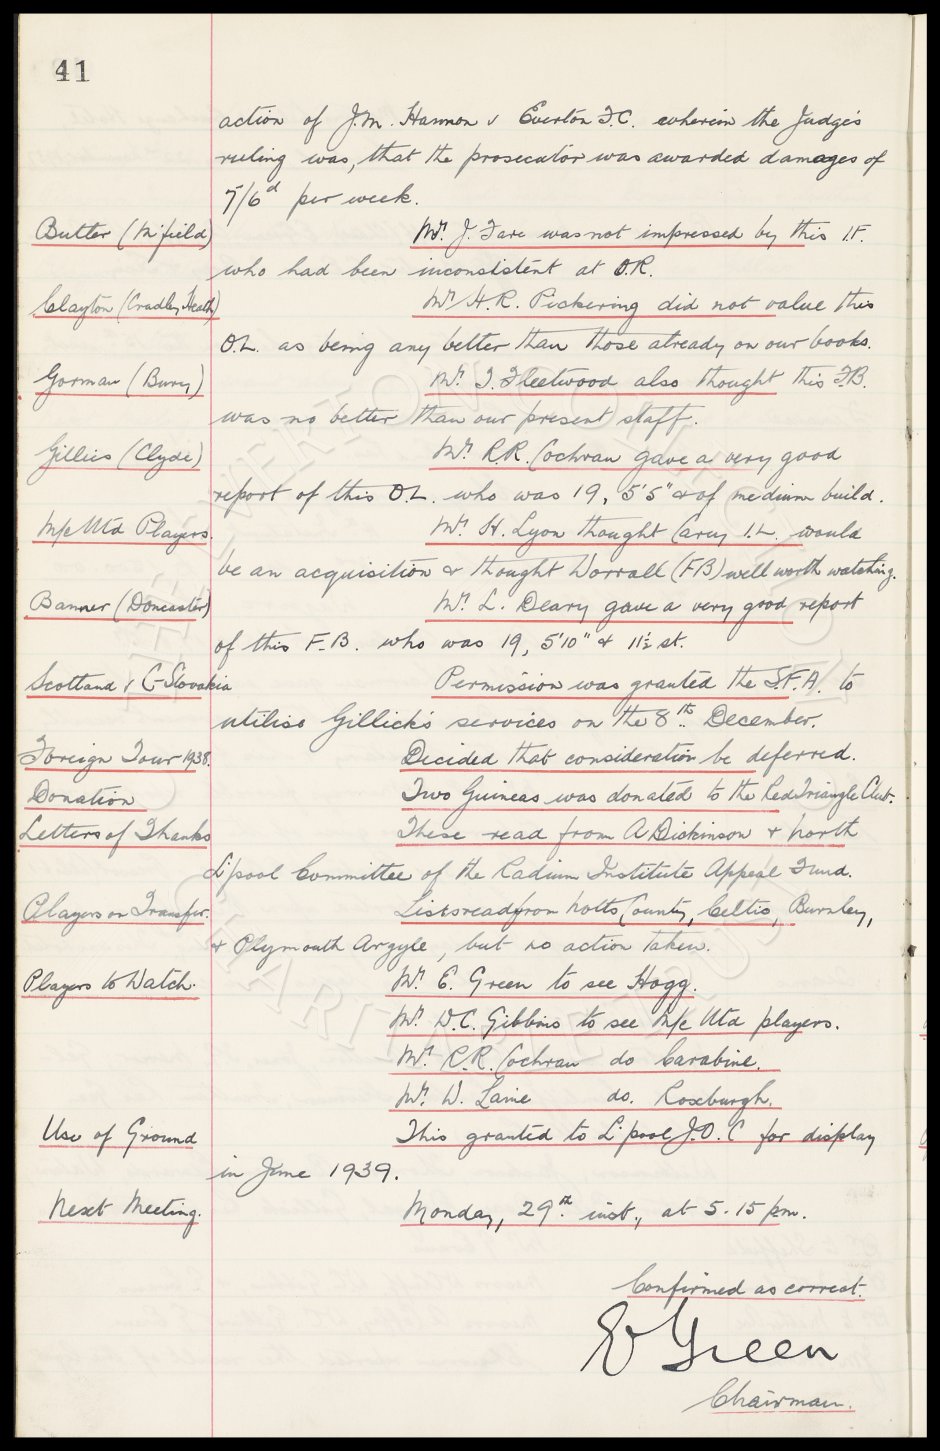 41
action of J.M. Harmon v Everton F.C. wherein the Judge's
ruling was, that the prosecutor was awarded damages of
7/6d per week.
Butter (M'field) Mr. J. Fare was not impressed by this I.F.
who had been inconsistent at O.R.
Clayton (Cradley Heath) Mr. H.R. Pickering did not value this
O.L. as being any better than those already on our books.
Gorman (Bury) Mr. T. Fleetwood also thought this F.B.
was no better than our present staff.
Gillies (Clyde) Mr. R.R. Cochran gave a very good
report of this O.L. who was 19, 5'5" & of medium build.
M/c Utd Players. Mr. H. Lyon thought Carey I.L. would
be an acquisition & thought Worrall (FB) well worth watching.
Banner (Doncaster) Mr. L. Deary gave a very good report
of this F.B. who was 19, 5'10" & 11½ st.
Scotland v C-Slovakia Permission was granted the S.F.A. to
utilise Gillick's services on the 8th. December.
Foreign Tour 1938. Decided that consideration be deferred.
Donation Two Guineas was donated to the Red Triangle Club.
Letters of Thanks These read from A Dickinson & North
L'pool Committee of the Radium Institute Appeal Fund.
Players on Transfer. Lists read from Notts County, Celtic, Burnley,
& Plymouth Argyle, but no action taken.
Players to Watch. Mr. E. Green to see Hogg.
Mr. W.C. Gibbins to see M/c Utd players.
Mr. R.R. Cochran do Carabine.
Mr. W. Laine do. Roxburgh.
Use of Ground This granted to L'pool J.O.C for display
in June 1939.
Next Meeting. Monday, 29th. inst., at 5.15 pm.
Confirmed as correct.
E Green
Chairman.
EVERTON COLLECTION
CHARITABLE TRUST